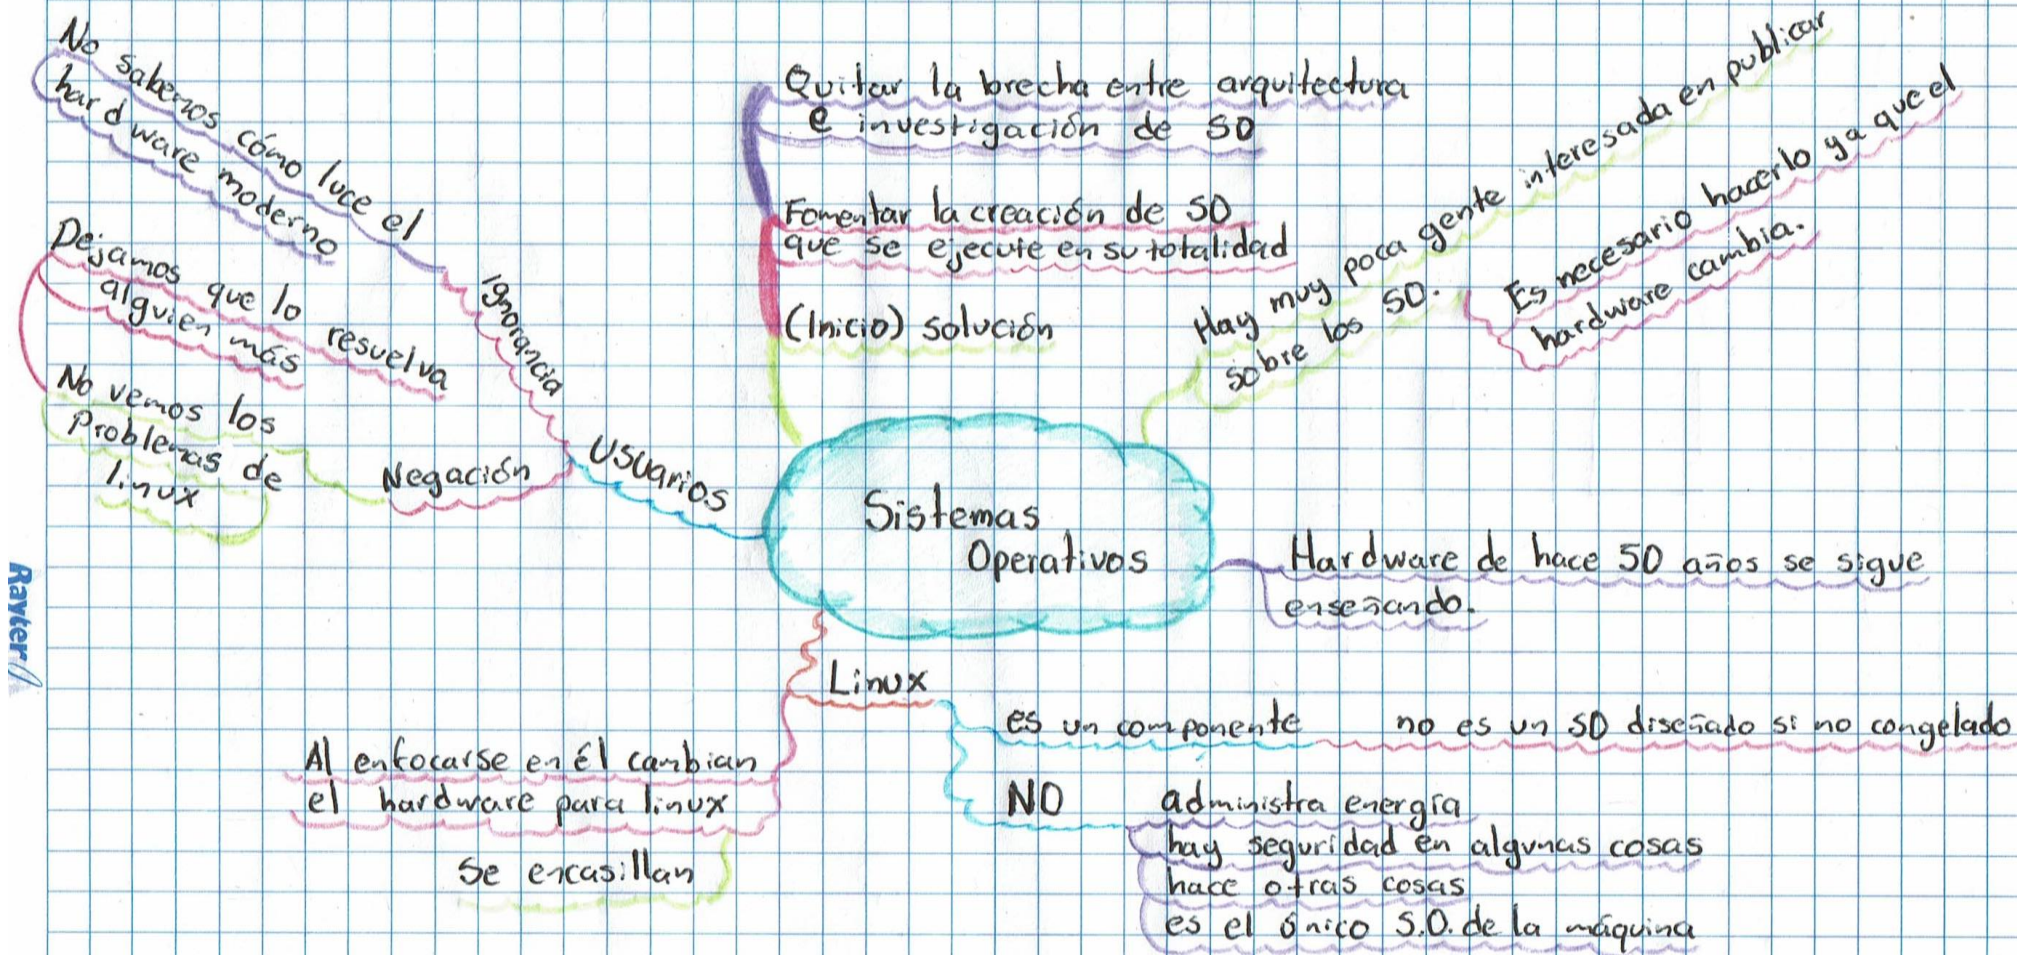 No sabemos cómo luce el
hardware moderno
Dejamos que lo resuelva
alguien más
No vemos los
Problemas de
linux
Ignorancia
Negación
Usuarios
Quitar la brecha entre arquitectura
e investigación de SO
Fomentar la creación de SO
que se ejecute en su totalidad
(Inicio) solución
Hay muy poca gente interesada en publicar
sobre los SO.
Es necesario hacerlo ya que el
hardware cambia.
Sistemas
Operativos
Hardware de hace 50 años se sigue
enseñando.
Linux
es un componente no es un SO diseñado si no congelado
NO administra energía
hay seguridad en algunas cosas
hace otras cosas
es el único S.O. de la máquina
Al enfocarse en él cambian
el hardware para linux
se encasillan
Rayter